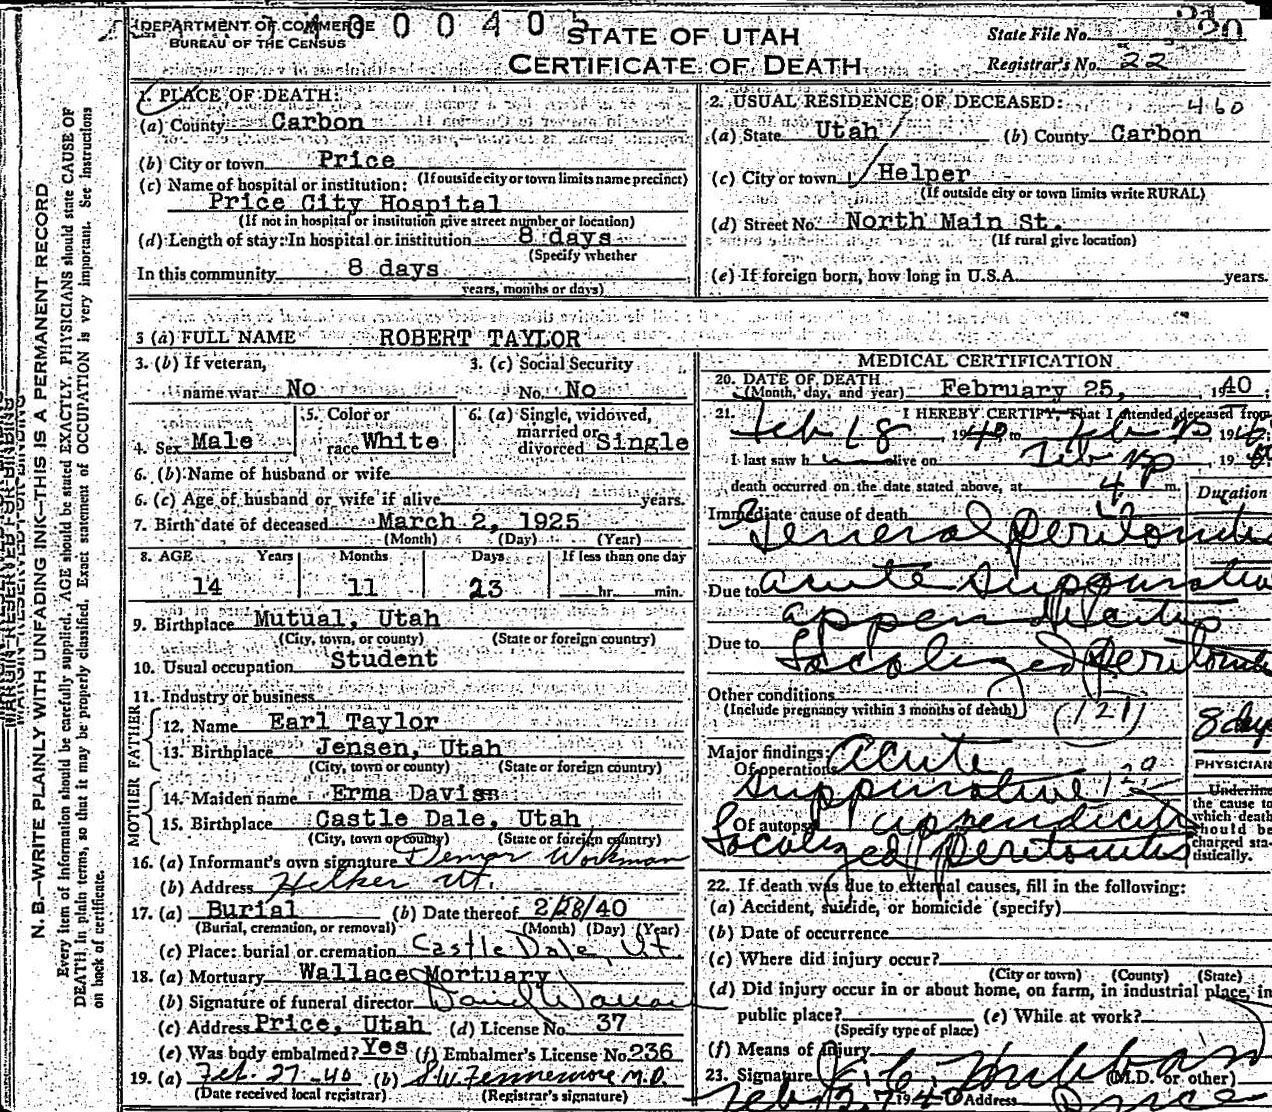 DEPARTMENT OF COMMERCE
BUREAU OF THE CENSUS
4 0 0 0 4 0 5
STATE OF UTAH
CERTIFICATE OF DEATH
State File No. 20
Registrar's No. 22
1. PLACE OF DEATH:
(a) County Carbon
(b) City or town Price
(If outside city or town limits name precinct)
(c) Name of hospital or institution:
Price City Hospital
(If not in hospital or institution give street number or location)
(d) Length of stay: In hospital or institution 8 days
(Specify whether
In this community 8 days
years, months or days)
2. USUAL RESIDENCE OF DECEASED: 460
(a) State Utah (b) County Carbon
(c) City or town Helper
(If outside city or town limits write RURAL)
(d) Street No. North Main St.
(If rural give location)
(e) If foreign born, how long in U.S.A. years.
3 (a) FULL NAME ROBERT TAYLOR
3. (b) If veteran, name war No
3. (c) Social Security No. No
4. Sex Male
5. Color or race White
6. (a) Single, widowed, married or divorced Single
6. (b) Name of husband or wife
6. (c) Age of husband or wife if alive years.
7. Birth date of deceased March 2, 1925
(Month) (Day) (Year)
8. AGE Years Months Days If less than one day
14 11 23 hr. min.
9. Birthplace Mutual, Utah
(City, town, or county) (State or foreign country)
10. Usual occupation Student
11. Industry or business
FATHER
12. Name Earl Taylor
13. Birthplace Jensen, Utah
(City, town or county) (State or foreign country)
MOTHER
14. Maiden name Erma Davis
15. Birthplace Castle Dale, Utah
(City, town or county) (State or foreign country)
16. (a) Informant's own signature Workman
(b) Address Helper Ut.
17. (a) Burial (b) Date thereof 2/28/40
(Burial, cremation, or removal) (Month) (Day) (Year)
(c) Place: burial or cremation Castle Dale, Ut
18. (a) Mortuary Wallace Mortuary
(b) Signature of funeral director
(c) Address Price, Utah (d) License No. 37
(e) Was body embalmed? Yes (f) Embalmer's License No. 236
19. (a) Feb. 27-40 (b) M.D.
(Date received local registrar) (Registrar's signature)
MEDICAL CERTIFICATION
20. DATE OF DEATH
(Month, day, and year) February 25, 1940;
21. I HEREBY CERTIFY, That I attended deceased from
Feb 18, 1940 to Feb 25 1940
I last saw h alive on Feb 19
death occurred on the date stated above, at 4 m.
Duration
Immediate cause of death
General Peritonitis
Due to acute Suppurative
appendicitis
Due to Localized Peritonitis
Other conditions
(Include pregnancy within 3 months of death)
(121)
8 days
Major findings:
Of operations Acute
Suppurative
Of autopsy appendicitis
Localized peritonitis
PHYSICIAN
Underline
the cause to
which death
should be
charged sta-
tistically.
22. If death was due to external causes, fill in the following:
(a) Accident, suicide, or homicide (specify)
(b) Date of occurrence
(c) Where did injury occur?
(City or town) (County) (State)
(d) Did injury occur in or about home, on farm, in industrial place, in
public place? (e) While at work?
(Specify type of place)
(f) Means of Injury
23. Signature (M.D. or other)
Feb 27 1940 Address Price
N.B.—WRITE PLAINLY WITH UNFADING INK—THIS IS A PERMANENT RECORD
Every item of information should be carefully supplied. AGE should be stated EXACTLY. PHYSICIANS should state CAUSE OF
DEATH in plain terms, so that it may be properly classified. Exact statement of OCCUPATION is very important. See Instructions
on back of certificate.
MARGIN RESERVED FOR BINDING